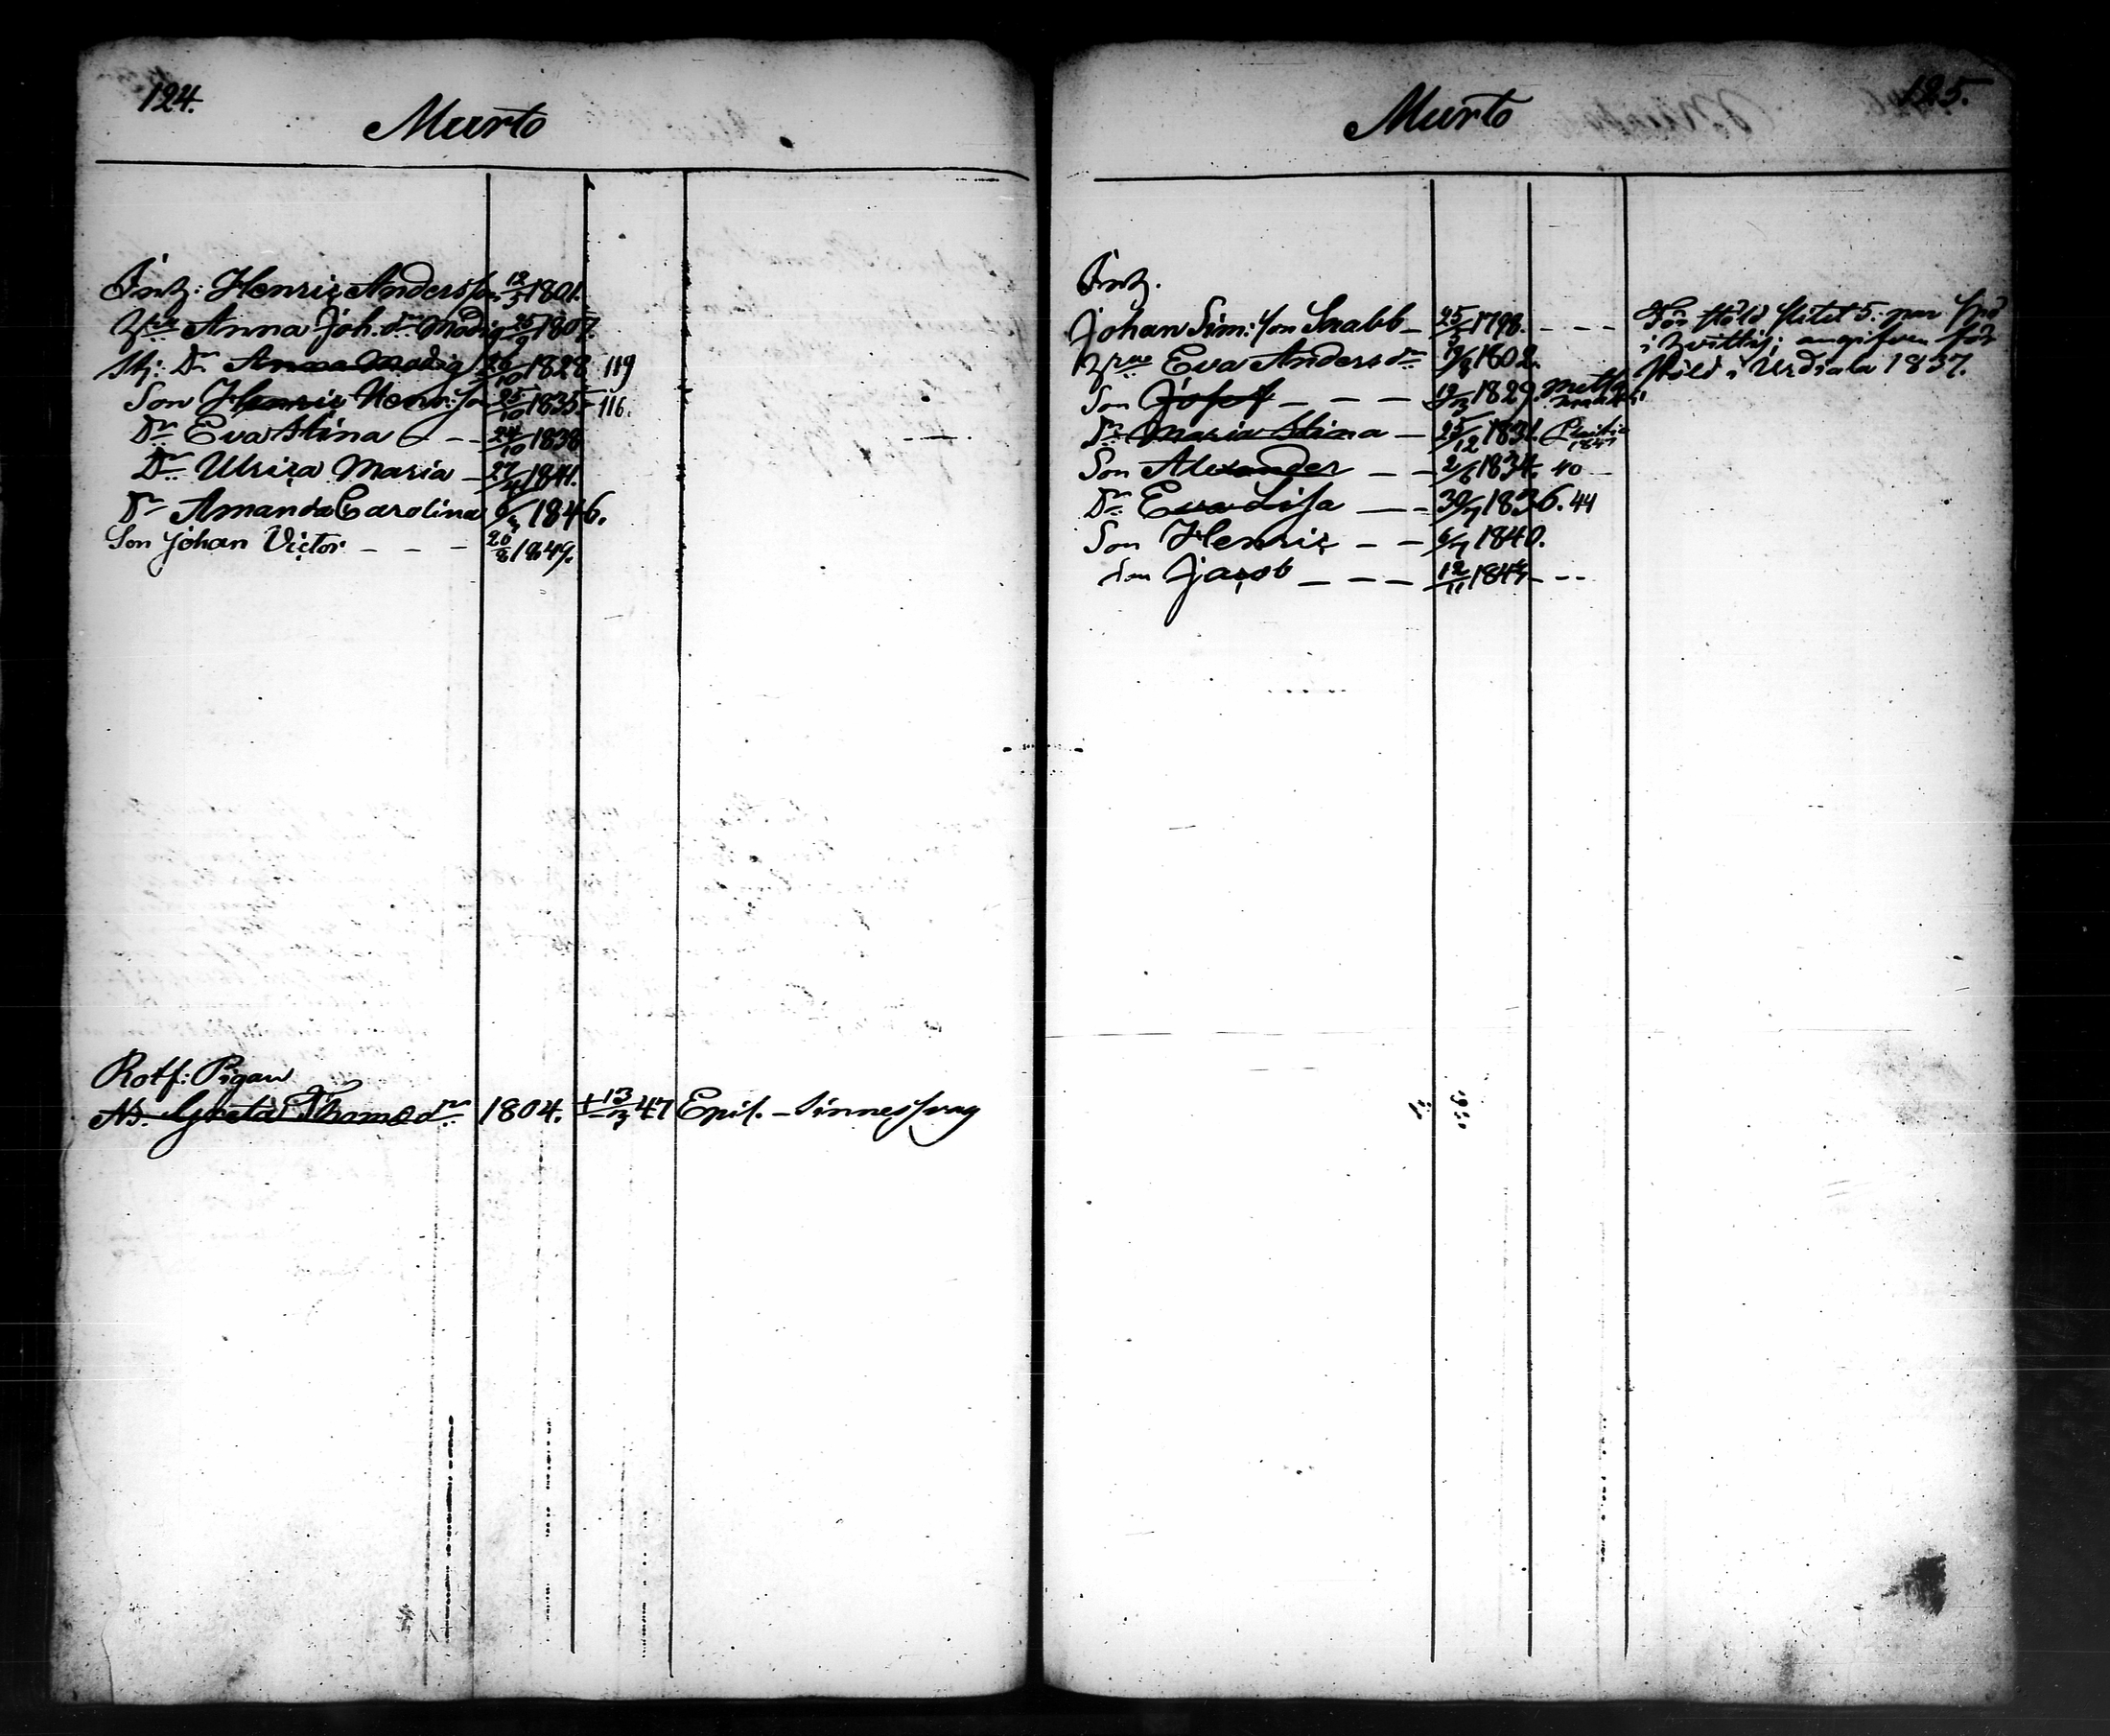 124.
Murto
Inh: Henric Andersson 13/3 1801.
H:ru Anna Joh.dr Madig 25/9 1807.
Sty: Dr Anna Madig 26/10 1828 119
Son Henric Henr:son 25/10 1835 116.
Dr Eva Stina 24/10 1838
Dr Ulrica Maria 27/4 1841.
Dr Amanda Carolina 6/3 1846.
Son Johan Victor 20/8 1849.
Rotf: Pigan
Greta Thomsdr 1804. † 13/3 47 Epil. Sinnessvag
125.
Murto
Inh.
Johan Sim:son Snabb 25/3 1798.
H:ru Eva Andersdr 1802.
Son Josef 1829.
Dr Maria Stina 25/12 1831. 1847
Son Alexander 2/6 1834. 40
Dr Eva Lisa 30/7 1836. 44
Son Henric 6/7 1840.
Son Jacob 12/11 1844
För stöld slitet 5. par spö
i angifven för
stöld i Urdiala 1837.